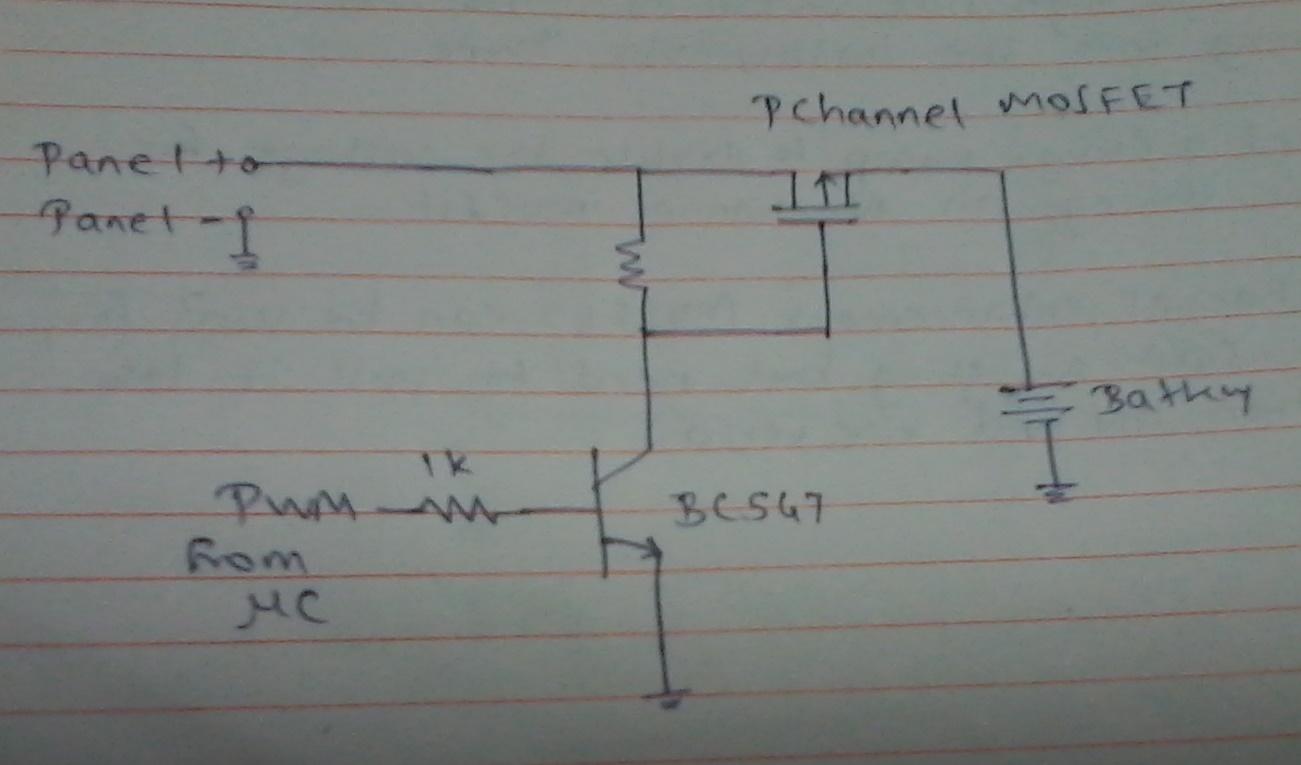 P Channel MOSFET
Panel +
Panel -
Battery
1k
PWM
BC547
From
μC